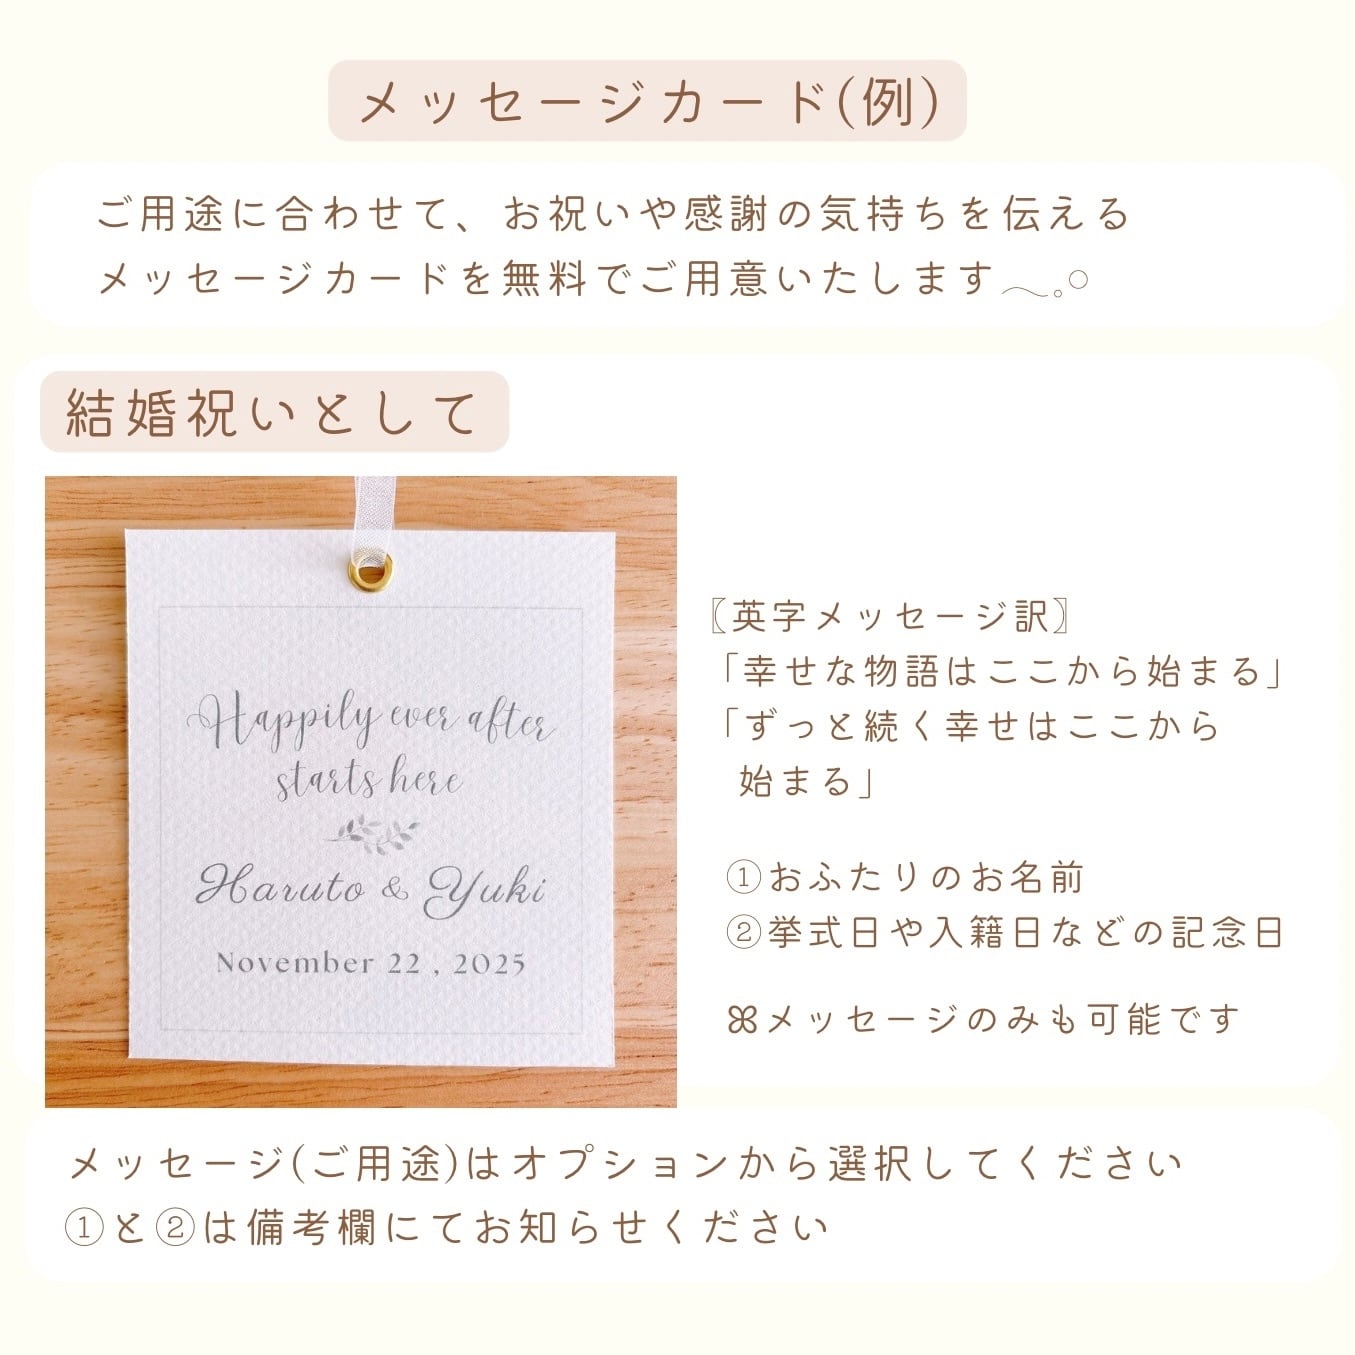 メッセージカード(例)
ご用途に合わせて、お祝いや感謝の気持ちを伝える
メッセージカードを無料でご用意いたします
結婚祝いとして
Happily ever after
starts here
Haruto & Yuki
November 22 , 2025
〖英字メッセージ訳〗
「幸せな物語はここから始まる」
「ずっと続く幸せはここから
始まる」
①おふたりのお名前
②挙式日や入籍日などの記念日
ꕤメッセージのみも可能です
メッセージ(ご用途)はオプションから選択してください
①と②は備考欄にてお知らせください